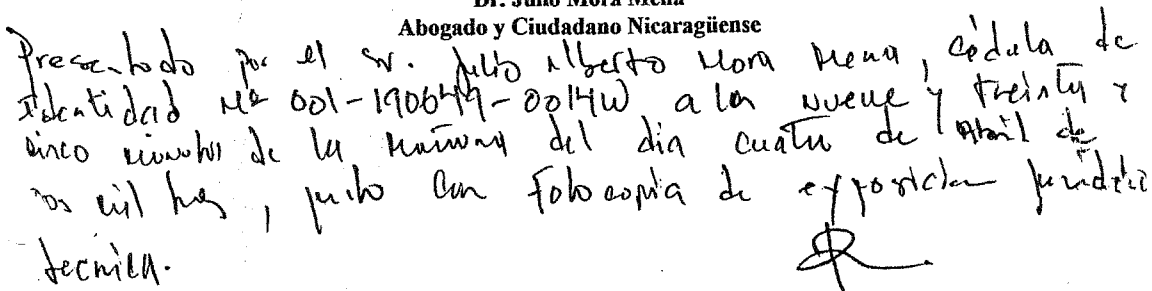 Dr. Julio Mora Mena
Abogado y Ciudadano Nicaragüense
Presentado por el Sr. Julio Alberto Mora Mena, cédula de
Identidad Nº 001-190649-0014W a las nueve y treinta y
cinco minutos de la mañana del día cuatro de Abril de
dos mil tres, junto con fotocopia de exposición jurídico
tecnica.